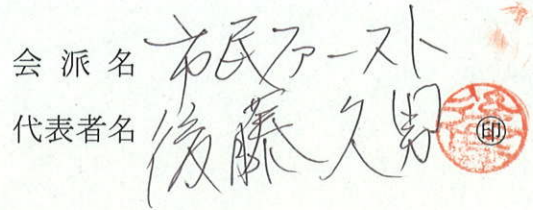 会派名 市民ファースト
代表者名 後藤久男 ㊞